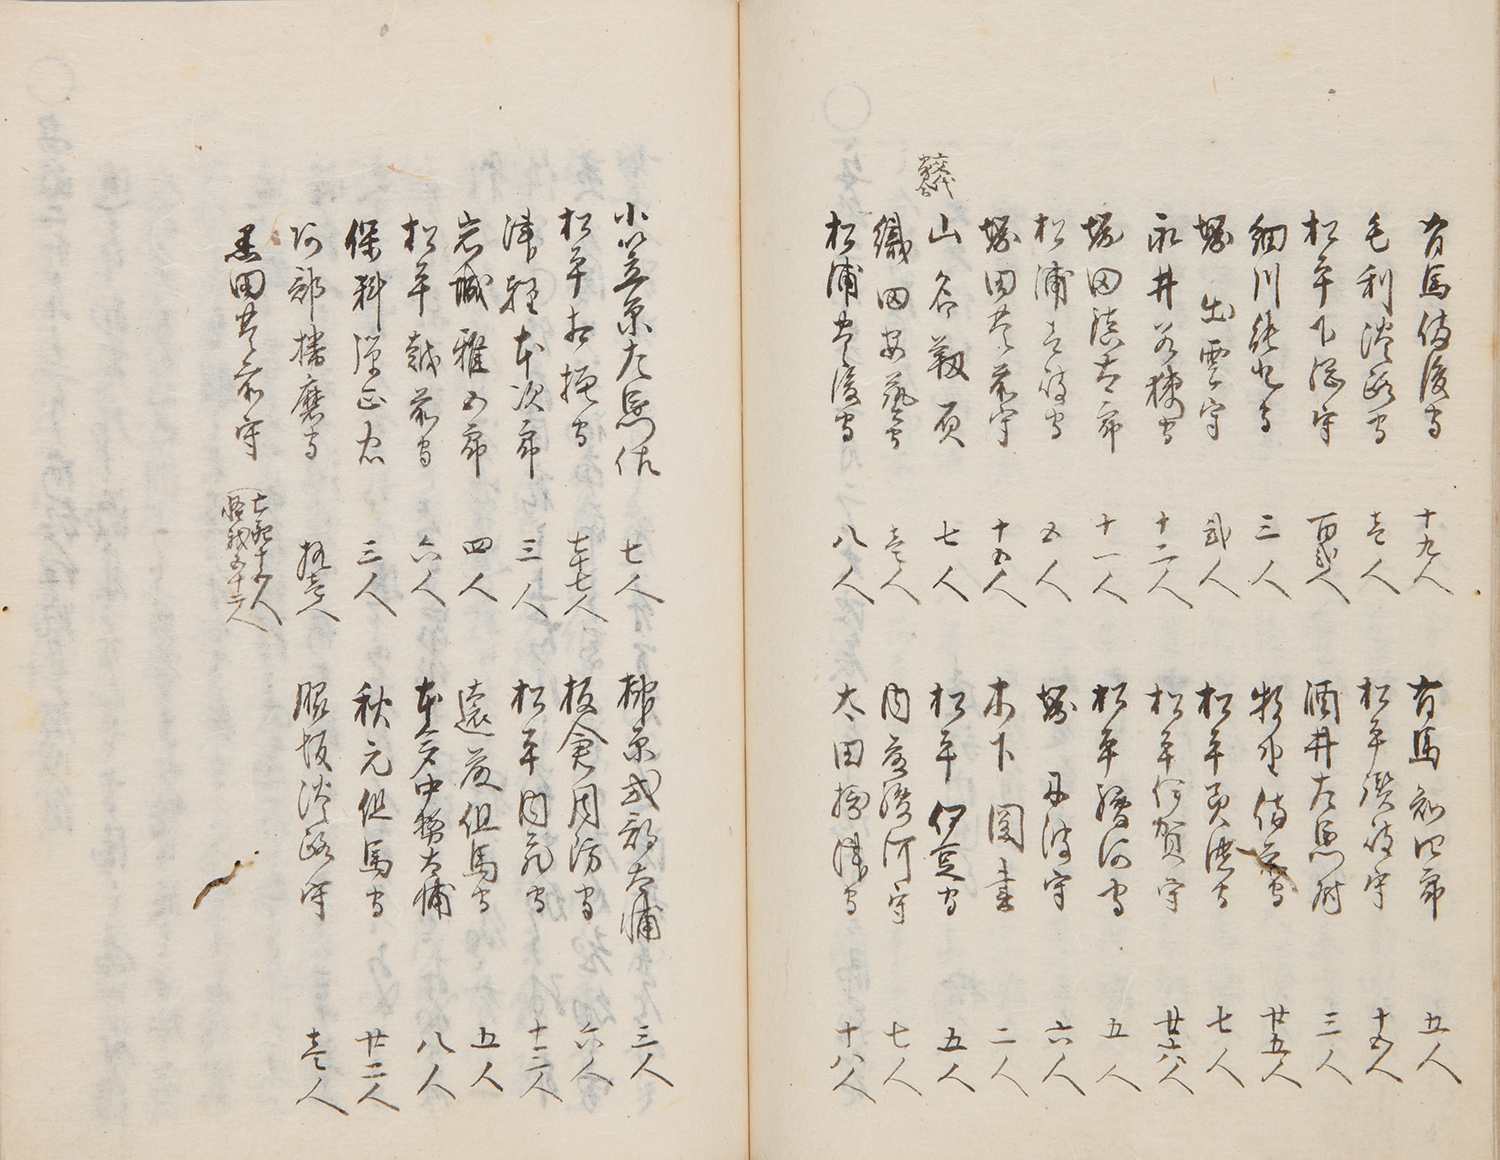 有馬備後守 十九人
毛利淡路守 壱人
松平下総守 百弐人
細川能登守 三人
堀出雲守 弐人
永井若狭守 十二人
堀田鎮太郎 十一人
松浦壱岐守 五人
堀田豊前守 十五人
交代寄合
山名靱負 七人
織田安藝守 壱人
松浦豊後守 八人
有馬知四郎 五人
松平讃岐守 十五人
酒井左馬尉 三人
牧野備前守 廿五人
松平美濃守 七人
松平伊賀守 廿六人
松平駿河守 五人
堀丹波守 六人
木下図書 二人
松平伊豆守 五人
内藤駿河守 七人
太田摂津守 十八人
小笠原左馬佐 七人
松平相模守 七十七人
津軽本次郎 三人
岩城雅五郎 四人
松平越前守 六人
保科弾正忠 三人
阿部播磨守 拾壱人
黒田豊前守
榊原式部大輔 三人
板倉周防守 六人
松平内蔵守 十二人
遠藤但馬守 五人
本多中務大輔 八人
秋元但馬守 廿二人
脇坂淡路守 壱人